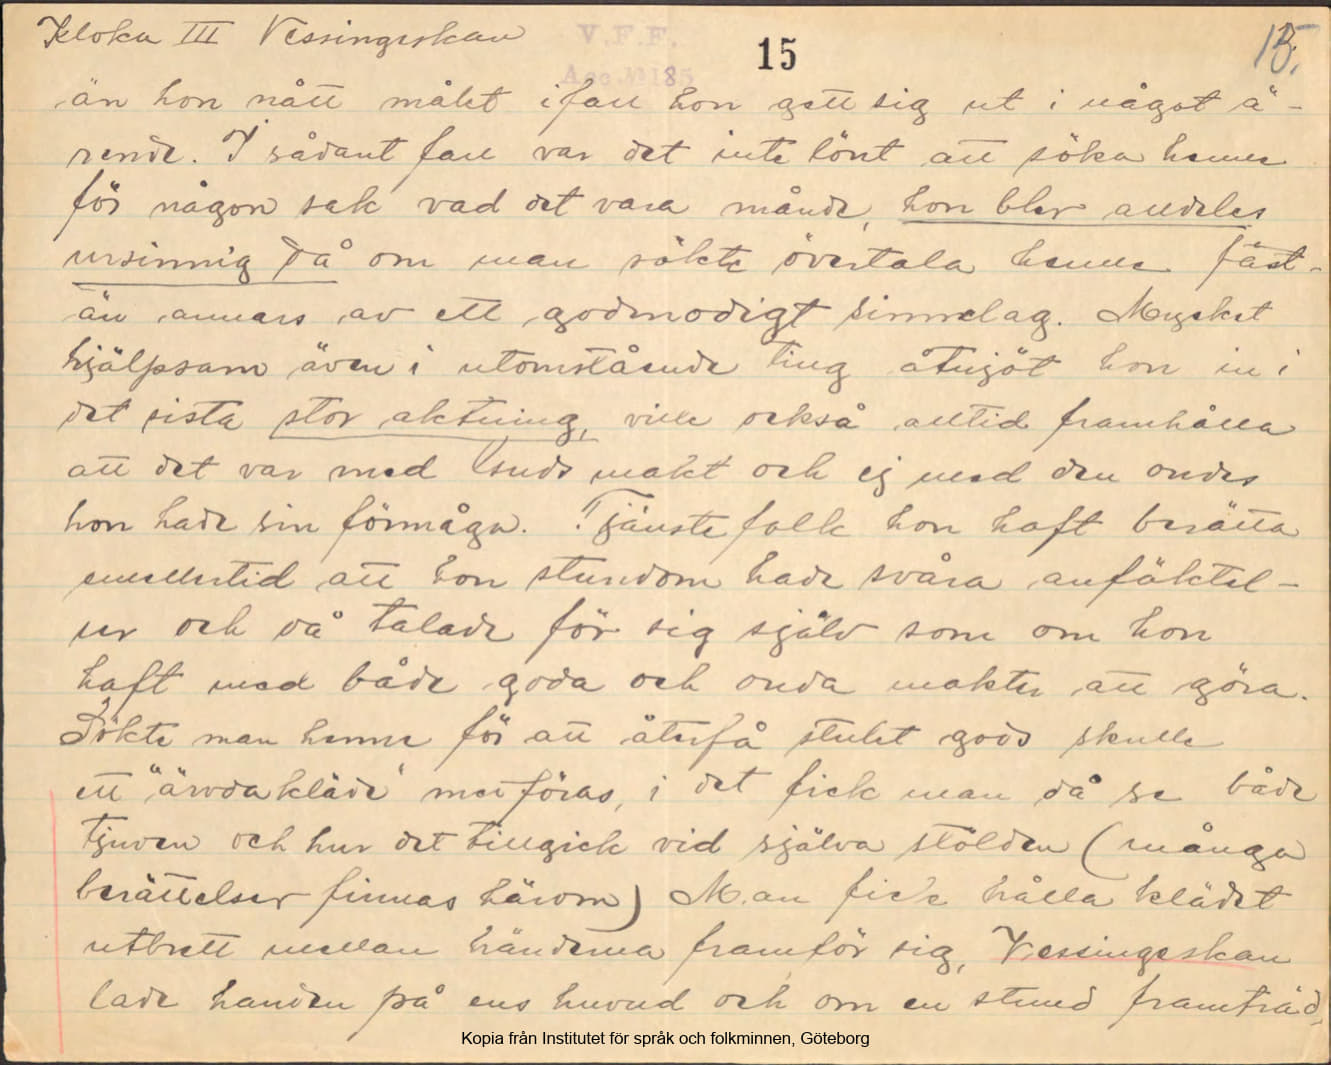 Kloka III Vessingeskan
V.F.F. 15 15.
Acc. № 185
än hon nått målet ifall hon gett sig ut i något ä-
rende. I sådant fall var det inte lönt att söka henne
för någon sak vad det vara månde, hon blev alldeles
ursinnig då om man sökte övertala henne fast-
än annars av ett godmodigt sinnelag. Mycket
hjälpsam även i utomstående ting åtnjöt hon in i
det sista stor aktning, ville också alltid framhålla
att det var med Guds makt och ej med den ondes
hon hade sin förmåga. Tjänstefolk hon haft berätta
emellertid att hon stundom hade svåra anfäktel-
ser och då talade för sig själv som om hon
haft med både goda och onda makter att göra.
Sökte man henne för att återfå stulet gods skulle
ett "ärvdakläde" medföras, i det fick man då se både
tjuven och hur det tillgick vid själva stölden (många
berättelser finnas härom) Man fick hålla klädet
utbrett mellan händerna framför sig, Vessingeskan
lade handen på ens huvud och om en stund framträd
Kopia från Institutet för språk och folkminnen, Göteborg